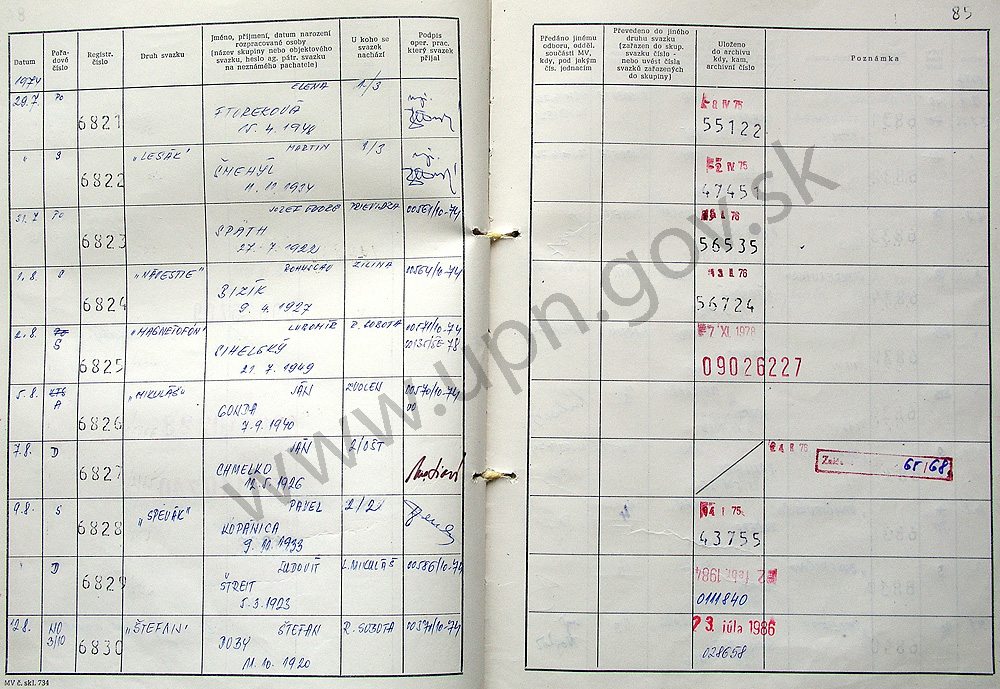 85
Datum
Pořadové číslo
Registr. číslo
Druh svazku
Jméno, příjmení, datum narození
rozpracované osoby
(název skupiny nebo objektového
svazku, heslo ag. pátr. svazku
na neznámého pachatele)
U koho se
svazek
nachází
Podpis
oper. prac.
který svazek
přijal
Předáno jinému
odboru, odděl.
součásti MV,
kdy, pod jakým
čís. jednacím
Převedeno do jiného
druhu svazku
(zařazen do skup.
svazku číslo -
nebo uvést čísla
svazků zařazených
do skupiny)
Uloženo
do archivu
kdy, kam,
archivní číslo
Poznámka
1974
29.7. PO 6821 ELENA 1/3
15. 4. 1940
IV 75
55122
" S 6822 „LESÁK" MARTIN 1/3
ČMEHÝL
11. 11. 1934
IV 75
47451
31.7 PO 6823 PRIEVIDZA 00561/10-74
SPÄTH
27. 7. 1922
76
56535
1.8. 6824 BOHUSLAV ŽILINA 00564/10-74
BIZÍK
9. 4. 1927
76
56724
2.8. S 6825 „MAGNETOFÓN" ĽUBOMÍR R. SOBOTA 00571/10-74
CIHELSKÝ
21. 7. 1949
7. XI. 1978
09026227
5.8. A 6826 „MIKULÁŠ" JÁN ZVOLEN 00570/10-74
GONDA
7. 9. 1940
7.8. D 6827 JÁN 2/OŠT
CHMELKO
12. 5. 1926
65/68
9.8. S 6828 „SPEVÁK" PAVEL 2/2
KOPANICA
9. 11. 1933
I 75
43755
" D 6829 ĽUDOVÍT L. MIKULÁŠ 00586/10-74
ŠTREIT
5. 3. 1923
2 febr. 1984
0111840
12.8. NO 3/10 6830 „ŠTEFAN" ŠTEFAN R. SOBOTA 00571/10-74
DOBY
11. 10. 1920
23. júla 1986
028658
MV č. skl. 734
www.upn.gov.sk